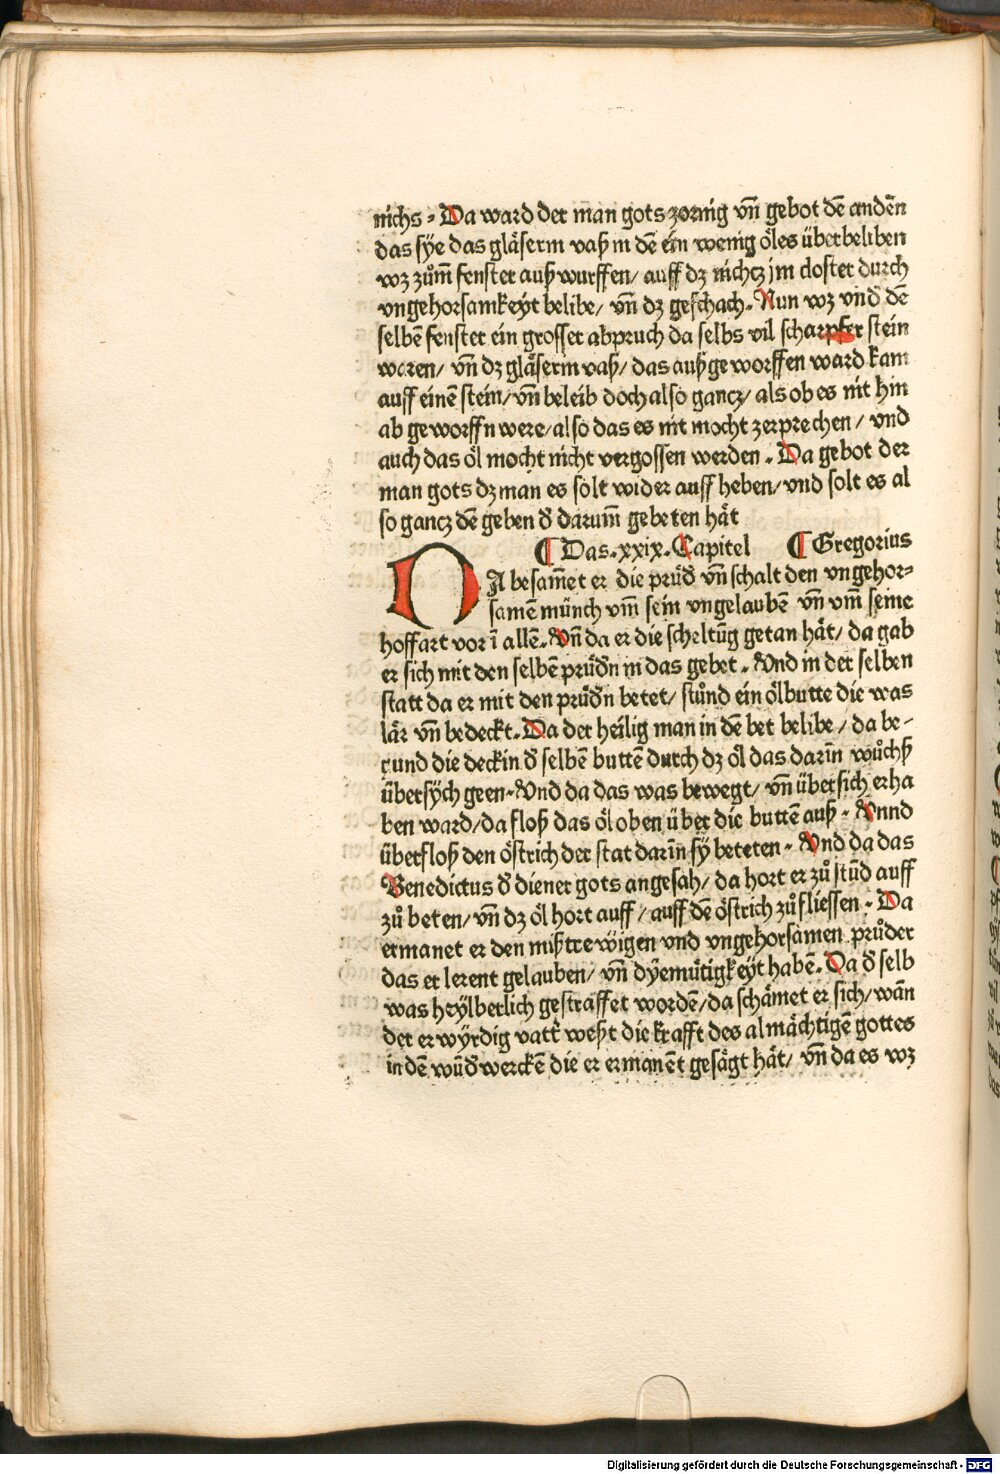 nichs. Da ward der man gots zornig vn̄ gebot dē andēn
das sÿe das gläserin vaß in dē ein wenig öles überbeliben
wz zům̄ fenster auß wurffen/ auff dz nichcz jm closter durch
vngehorsamkeyt belibe/ vn̄ dz geschach. Nun wz vnd̄ dē
selbē fenster ein grosser abpruch da selbs vil scharpfer stein
waren/ vn̄ dz gläserin vaß/ das auß geworffen ward kam
auff einē stein/ vn̄ beleib doch also gancz/ als ob es nit hin
ab geworffn were/ also das es nit mocht zerprechen/ vnd
auch das öl mocht nicht vergossen werden. Da gebot der
man gots dz man es solt wider auff heben/ vnd solt es al
so gancz dē geben d̄ darum̄ gebeten hät
¶ Das .xxix. Capitel ¶ Gregorius
DA besam̄et er die prüd̄ vn̄ schalt den vngehor-
samē münch vm̄ sein vngelaubē vn̄ vm̄ seine
hoffart vor ī allē. Vn̄ da er die scheltūg getan hät/ da gab
er sich mit den selbē prüd̄n in das gebet. Vnd in der selben
statt da er mit den prüd̄n betet/ stůnd ein ölbutte die was
lär vn̄ bedeckt. Da der heilig man in dē bet belibe/ da be-
gund die deck in d̄ selbē buttē durch dz öl das darīn wůchß
übersÿch geen. Vnd da das was bewegt/ vn̄ übersich erha
ben ward/ da floß das öl oben über die buttē auß. Vnnd
überfloß den östrich der stat darīn sÿ beteten. Vnd da das
Benedictus d̄ diener gots angesah/ da hort er zů stūd auff
zů beten/ vn̄ dz öl hort auff/ auff dē östrich zů fliessen. Da
ermanet er den mißtrewigen vnd vngehorsamen průder
das er lerent gelauben/ vn̄ dÿemütigkeyt habē. Da d̄ selb
was heÿlberlich gestraffet wordē/ da schämet er sich/ wān
der erwÿrdig vatt̄ weßt die krafft des almächtigē gottes
in dē wūd̄werckē die er ermanēt gesägt hät/ vn̄ da es wz
Digitalisierung gefördert durch die Deutsche Forschungsgemeinschaft - DFG